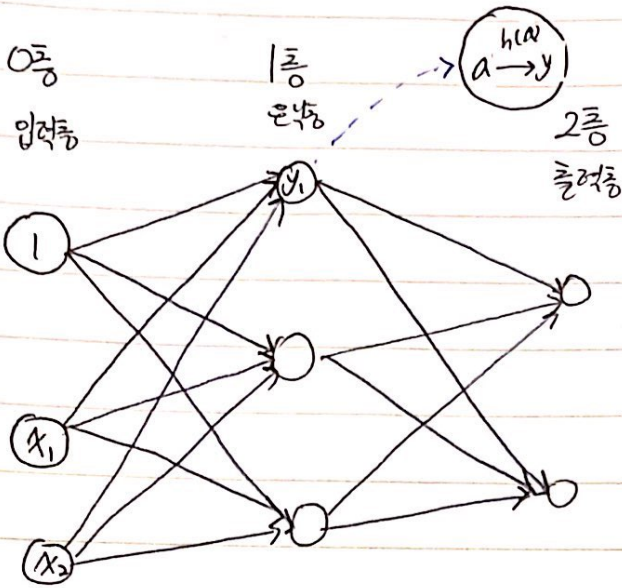 0층
입력층
1층
은닉층
h(a)
a → y
2층
출력층
y₁
1
x₁
x₂